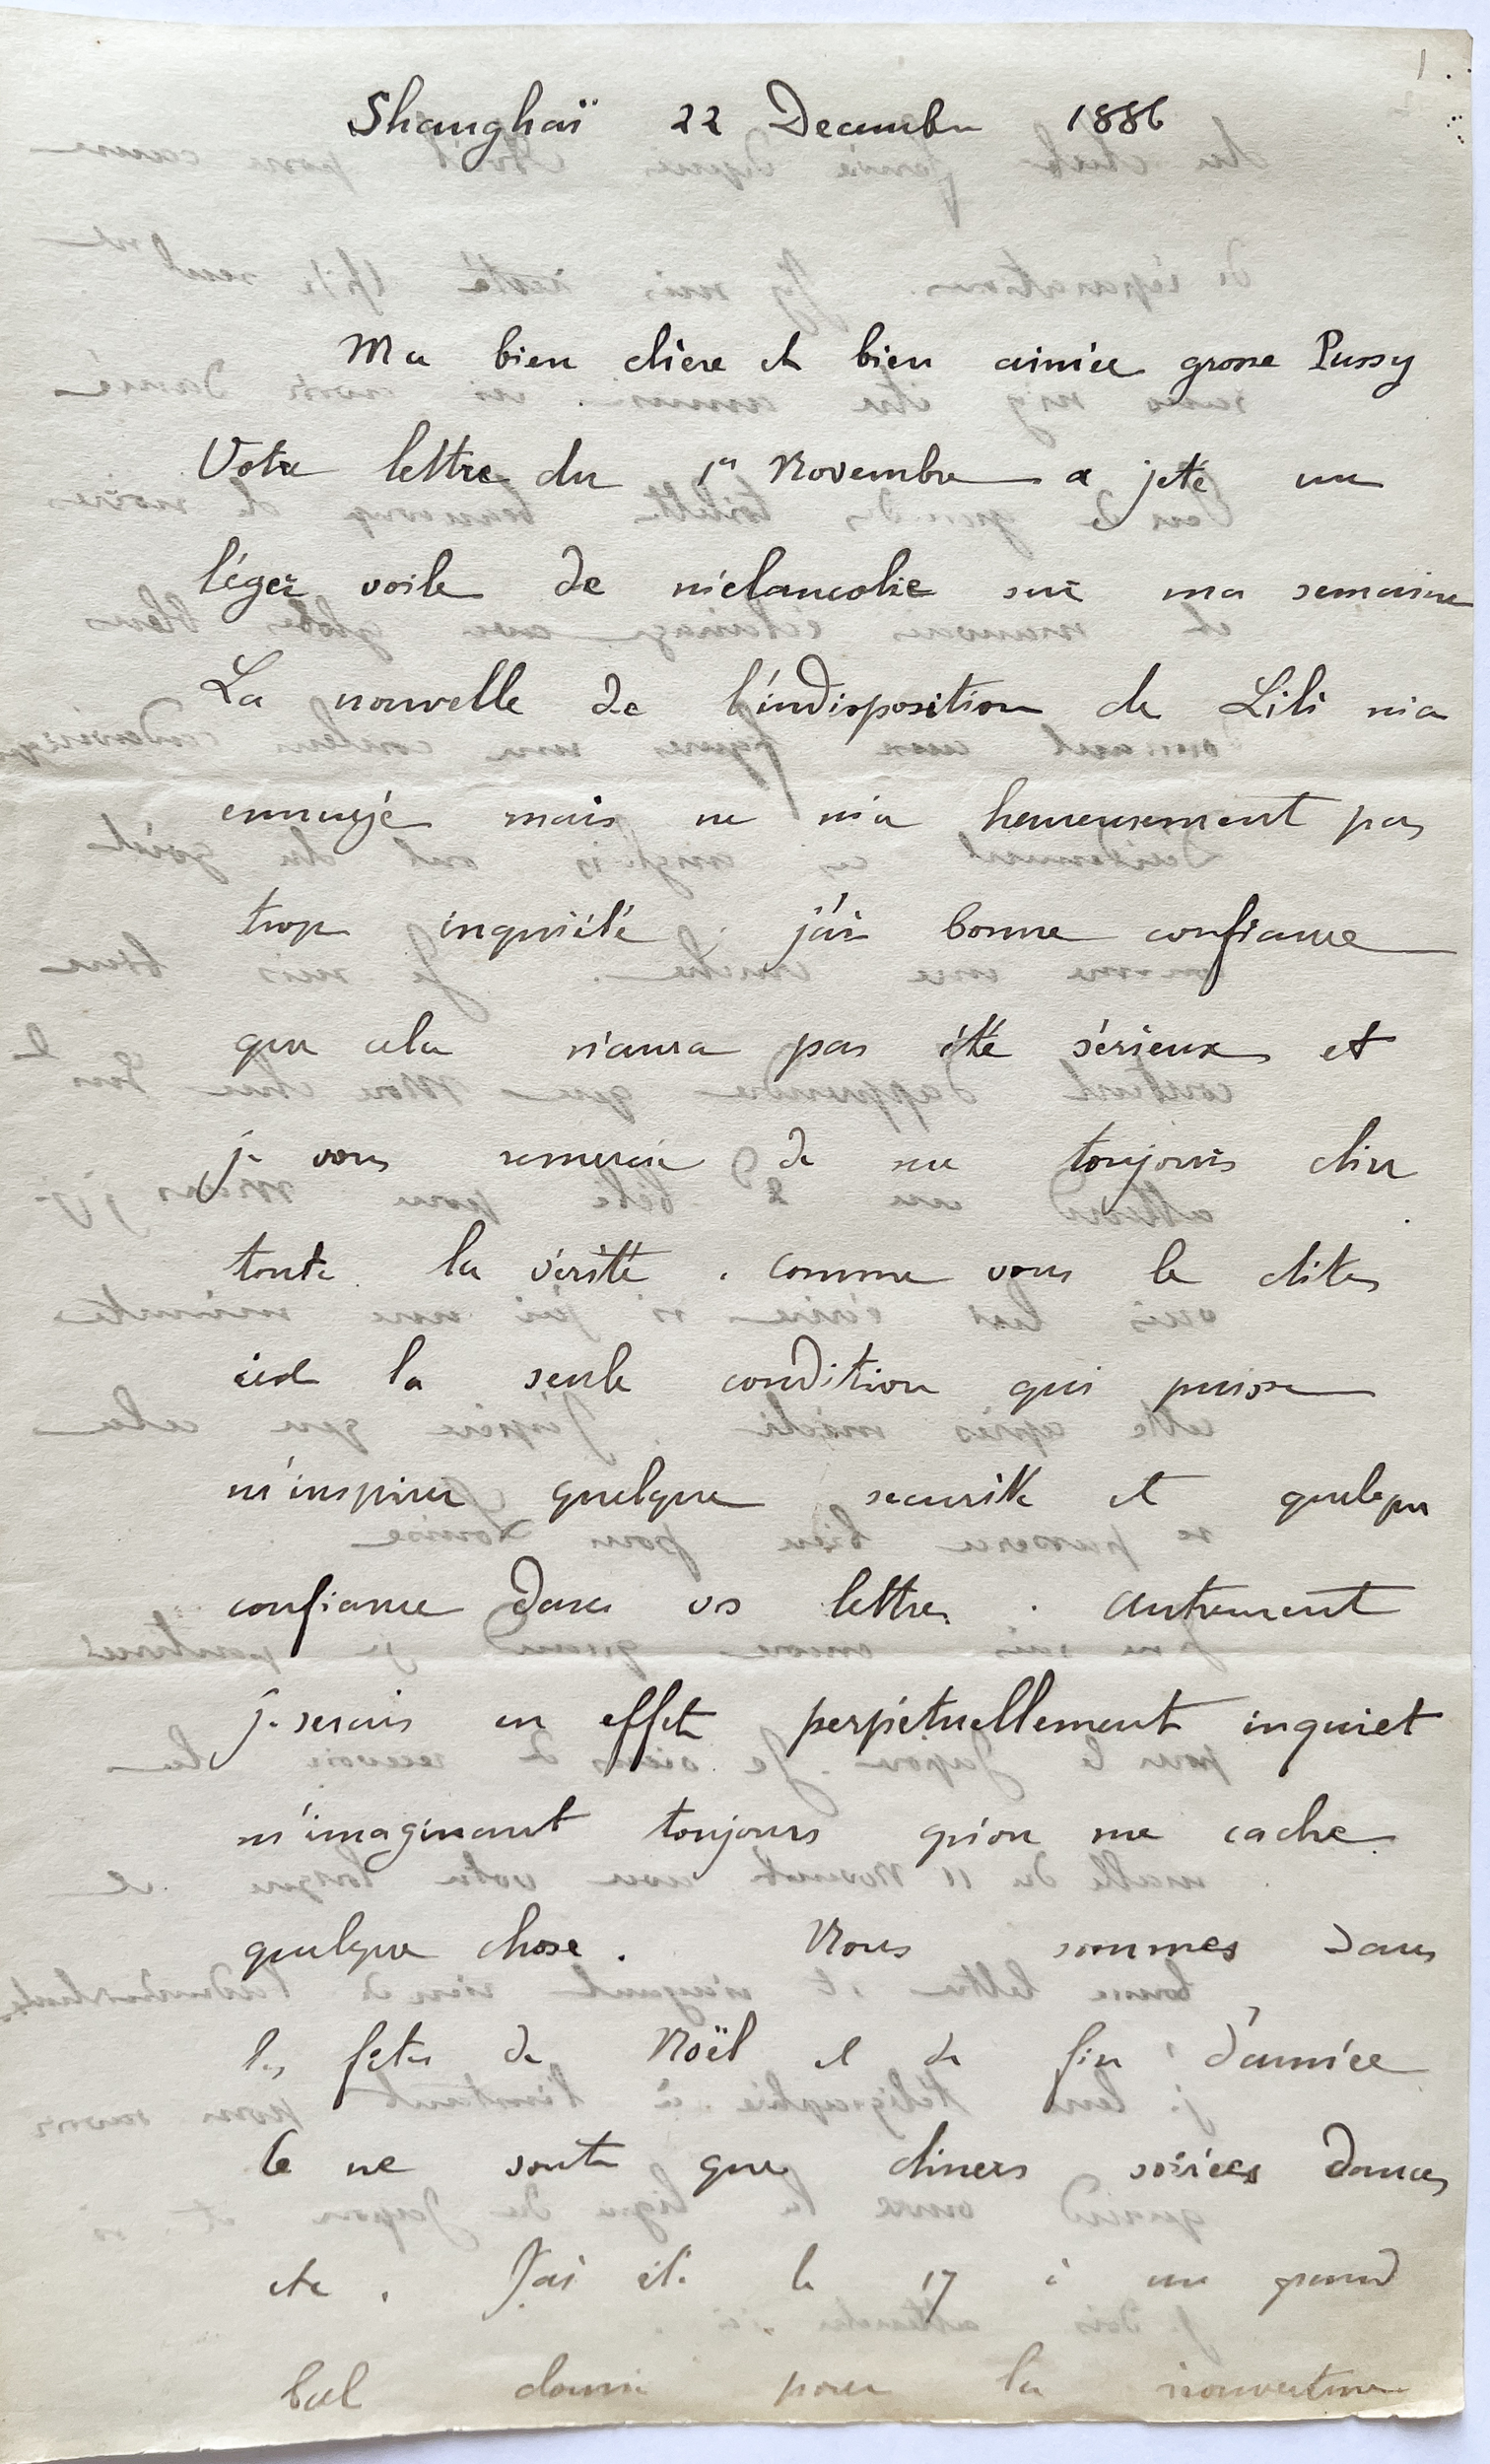 1
Shanghaï 22 Decembre 1886
Ma bien chère et bien aimée grosse Pussy
Votre lettre du 1er Novembre a jeté un
léger voile de mélancolie sur ma semaine
La nouvelle de l'indisposition de Lili m'a
ennuyé mais ne m'a heureusement pas
trop inquiété. j'ai bonne confiance
que cela n'aura pas été sérieux et
je vous remercie de me toujours dire
toute la vérité. comme vous le dites
c'est la seule condition qui puisse
m'inspirer quelque securité et quelque
confiance dans vos lettres. autrement
je serais en effet perpétuellement inquiet
m'imaginant toujours qu'on me cache
quelque chose. Nous sommes dans
les fêtes de Noël et de fin d'année
Ce ne sont que diners soirées danses
etc. J'ai été le 17 à un grand
bal donné pour la réouverture